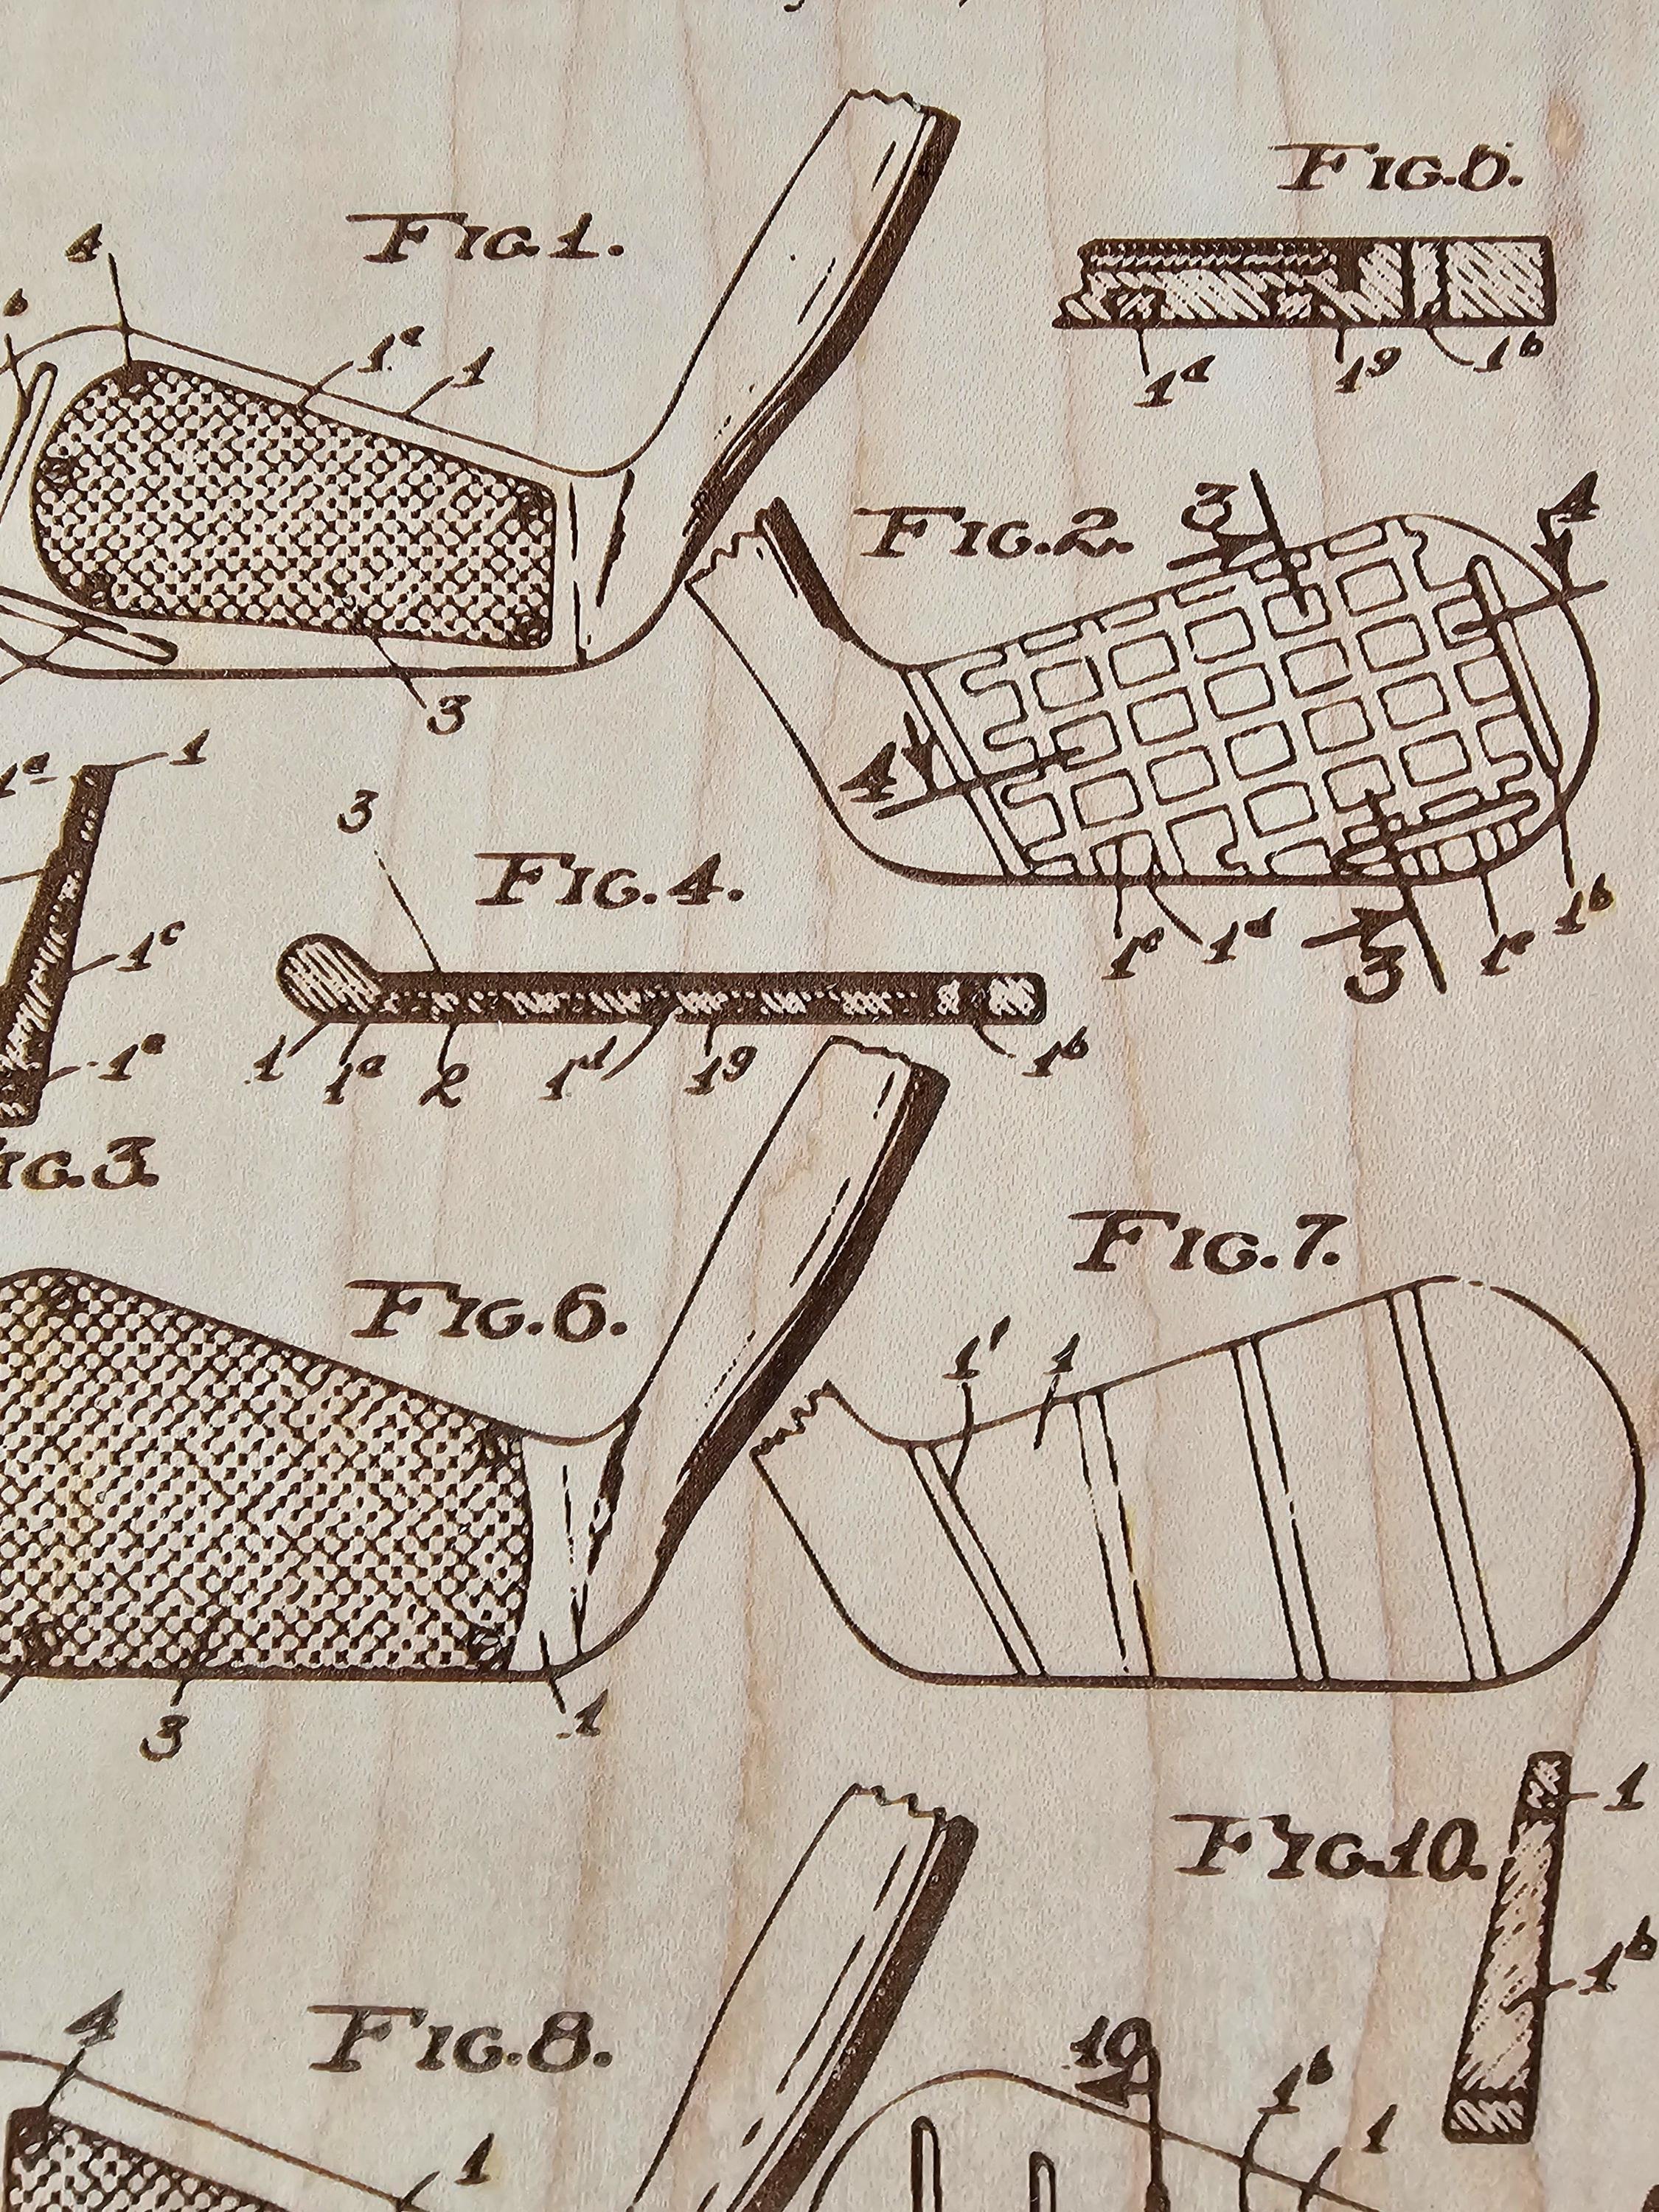 FIG.0.
FIG.1.
4
b
1c
1
3
1d
1g
1b
FIG.2.
3
4
4
1c
1d
3
1e
1b
1
1c
1a
FIG.3.
3
FIG.4.
1
1a
2
1d
1g
1b
FIG.6.
3
1
FIG.7.
1f
1
FIG.10.
1
1b
FIG.8.
4
1
10
1b
1